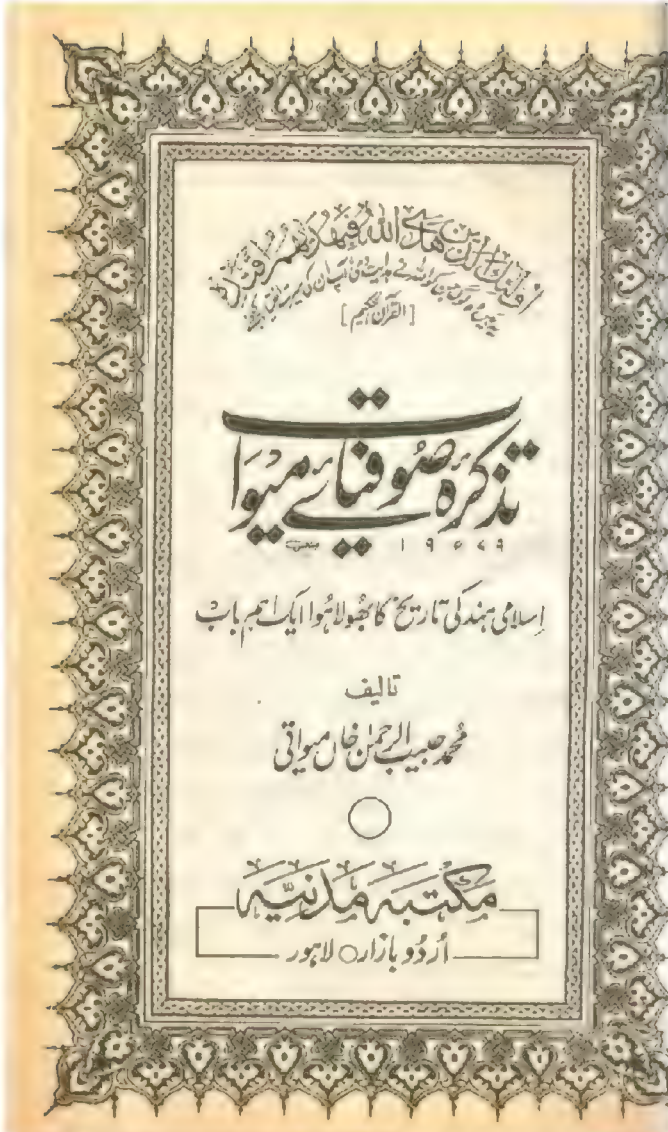 اُولٰٓئِكَ الَّذِيْنَ هَدَى اللّٰهُ فَبِهُدٰىهُمُ اقْتَدِهْ
یہ ہیں وہ لوگ جن کو اللہ نے ہدایت دی آپ ان کی
[القرآن الحکیم]
تذکرۂ صوفیائے میوات
۱۹۷۹
اِسلامی ہند کی تاریخ کا بھولا ہوا ایک اہم باب
تالیف
محمد حبیب الرحمٰن خاں میواتی
مکتبہ مدنیہ
اُردو بازار ○ لاہور